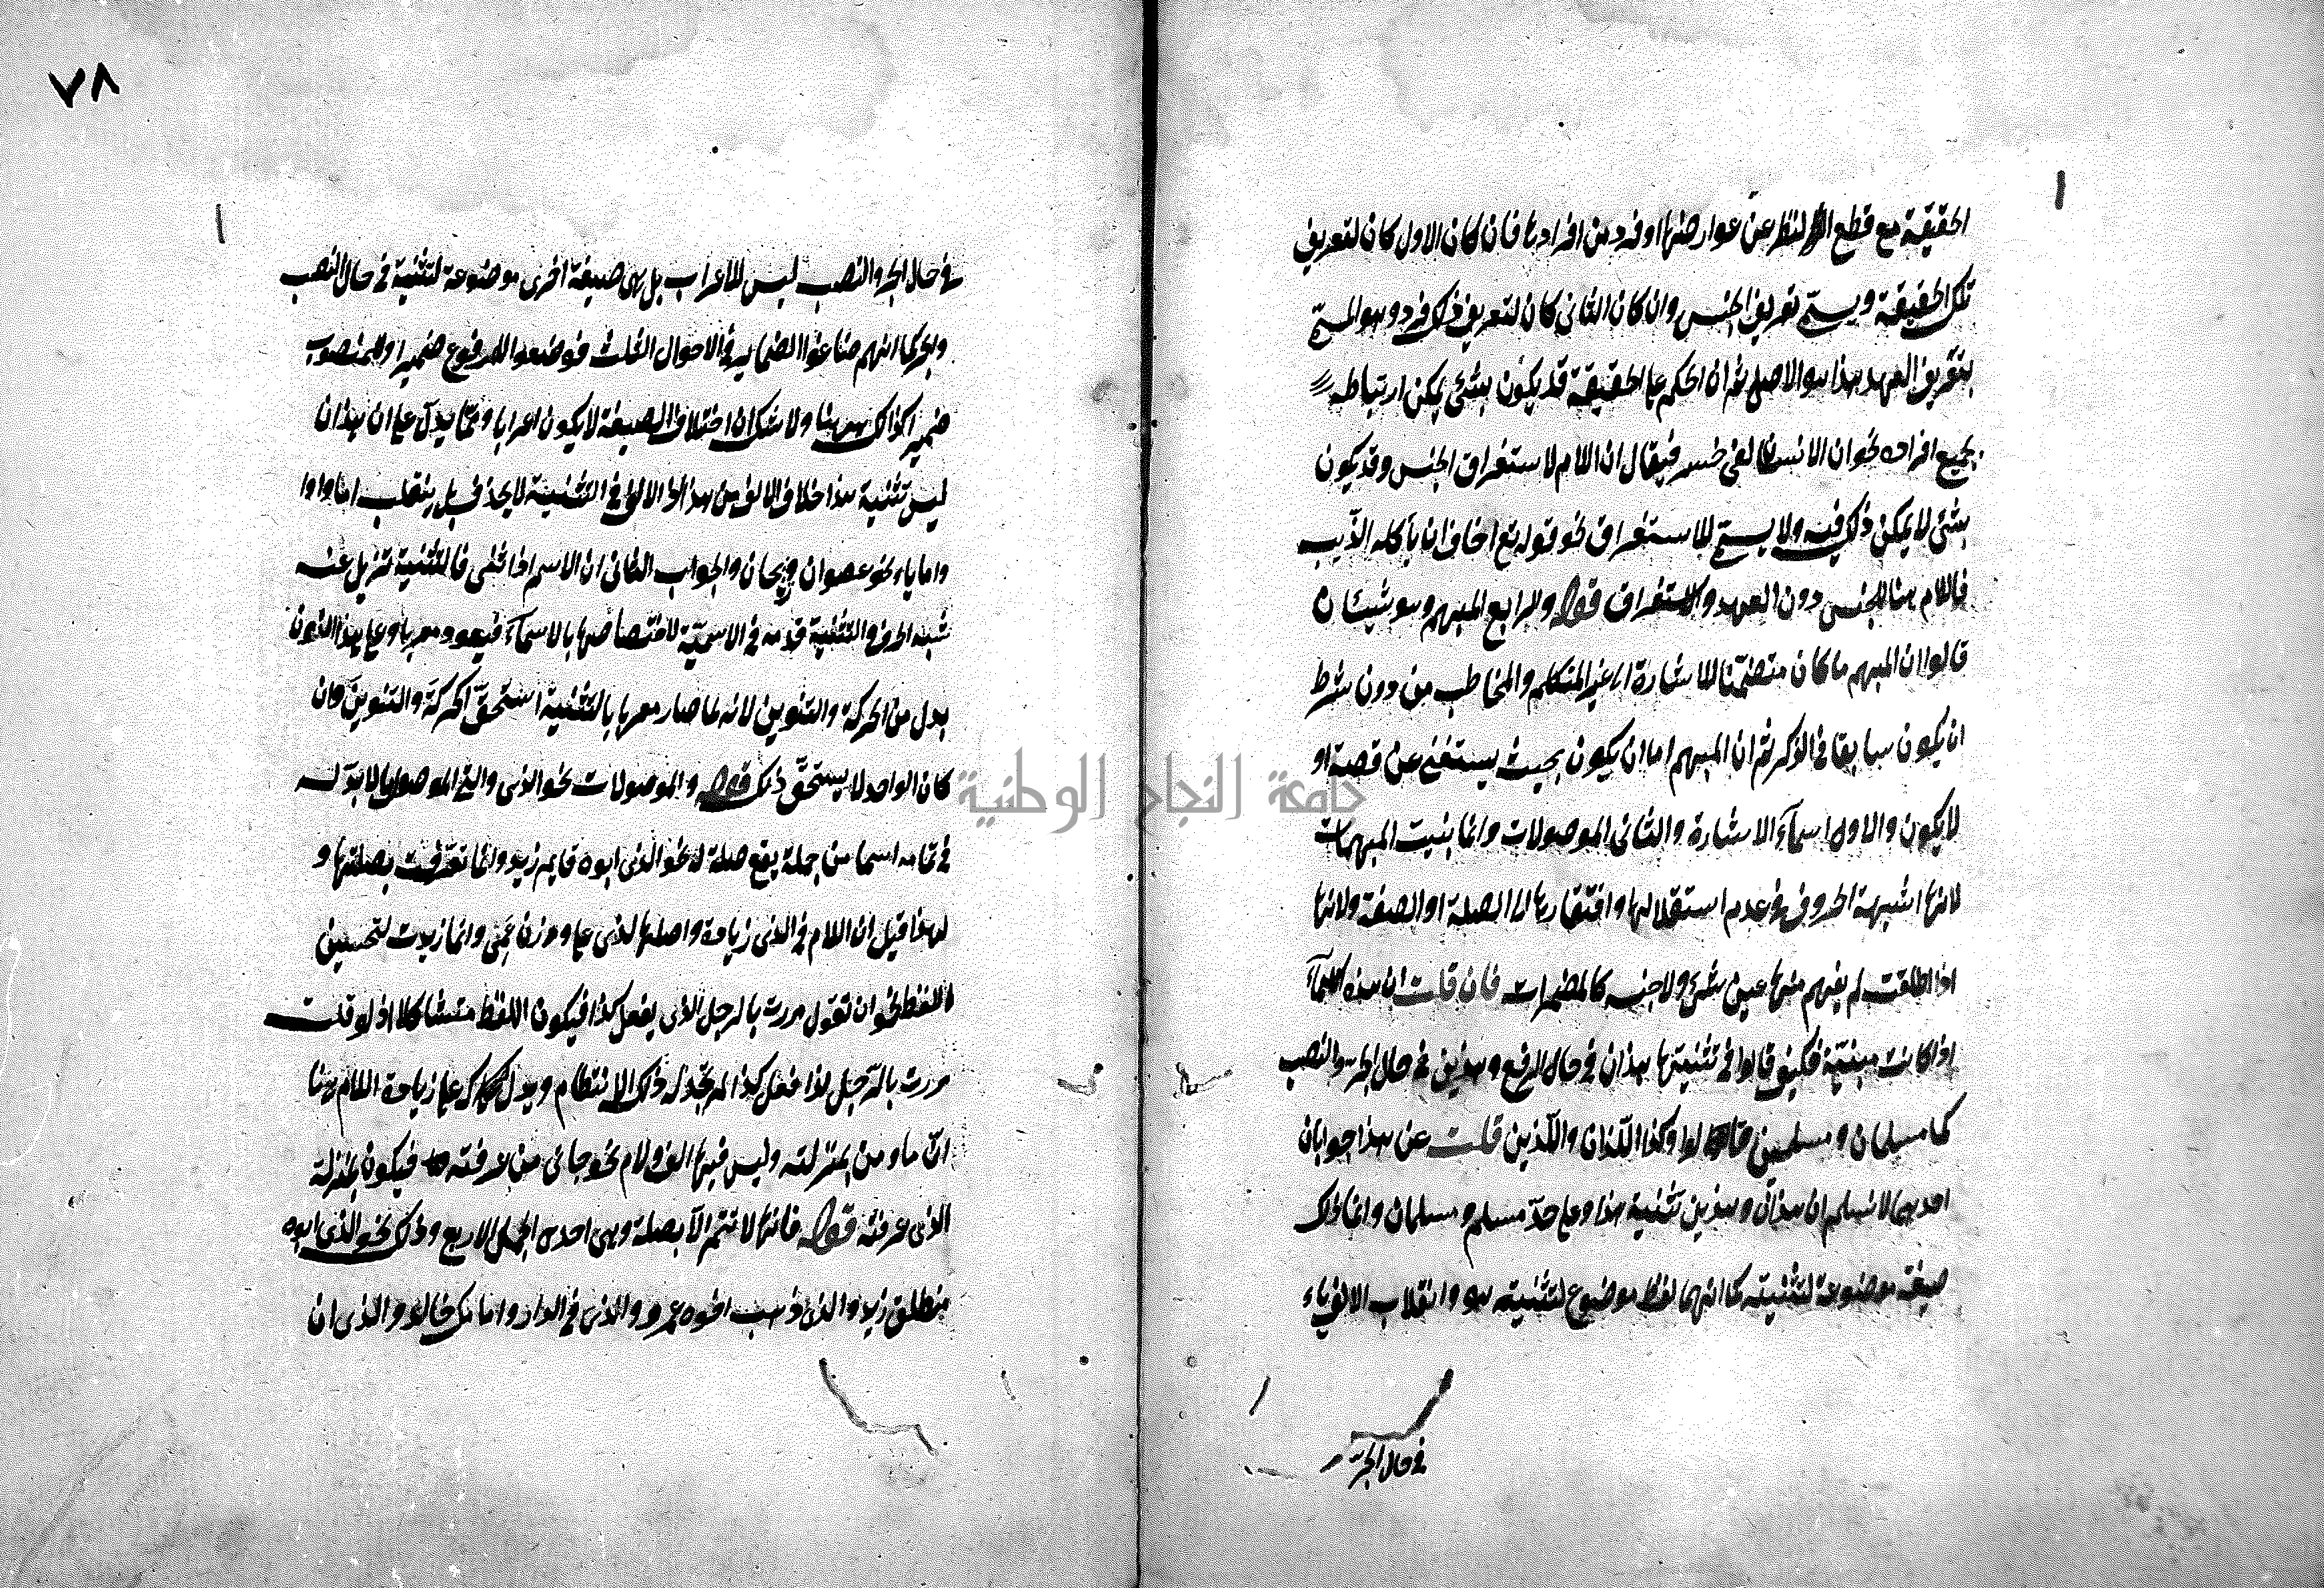 الحقيقة مع قطع النظر عن عوارضها او فرد من افرادها فان كان الاول كان لتعريف
تلك الحقيقة ويسمى تعريف الجنس وان كان الثانى كان لتعريف ذلك فرد وهو المسمى
بتعريف العهد هذا هو الاصل ثم ان الحكم على الحقيقة قد يكون بشئ يمكن ارتباطه
بجميع افراده نحو ان الانسان لفى خسر فيقال ان اللام لاستغراق الجنس وقد يكون
بشئ لا يمكن ذلك فيه ولا يسمى للاستغراق نحو قوله تع اخاف ان يأكله الذيب
فاللام هنا للجنس دون العهد والاستغراق قوله والرابع المبهم وهو شيئان
قالوا ان المبهم ما كان متضمنا للاشارة الى غير المتكلم والمخاطب من دون شرط
ان يكون سابقا فى الذكر ثم ان المبهم اما ان يكون بحيث يستغنى عن قصة او
لا يكون والاول اسمآء الاشارة والثانى الموصولات وانما بنيت المبهمات
لانها اشبهة الحروف فى عدم استقلالها وافتقارها الى الصلة او الصفة ولانها
اذا اطلقت لم يفهم منها عين شئ ولا جنسه كالمضمرات فان قلت ان هذه الاسمآء
اذا كانت مبنية فكيف قالوا فى تثنيتها هذان فى حال الرفع وهذين فى حال الجر والنصب
كما مسلمان ومسلمين قالوا وكذا اللذان واللذين قلت عن هذا جوابان
احدهما لا نسلم ان هذان وهذين تثنية هذا وعلى حد مسلم ومسلمان وانما ذلك
صيغة موضوعة لتثنيته كما انهما لفظ موضوع لتثنية هو وانقلاب الالف ياء
فى حال الجر
٧٨
فى حال الجر والنصب ليس للاعراب بل هى صيغة اخرى موضوعة لتثنية فى حال النصب
والجر كما انهم صاغوا الضماير فى الاحوال الثلث فوضعوا للمرفوع ضميرا وللمنصوب
ضميرا كذلك ههنا ولا شك ان اختلاف الصيغة لا يكون اعرابا ومما يدل على ان هذان
ليس تثنية هذا خلاف الالف من هذا اذ الالف فى التثنية لا يحذف بل ينقلب اما واوا
واما ياء نحو عصوان ورحيان والجواب الثانى ان الاسم اذا ثنى فالتثنية تزيل عنه
شبه الحرف والتثنية قدمه فى الاسمية لاختصاصها بالاسمآء فيعود معربا وعلى هذا النون
بدل من الحركة والتنوين لانه لما صار معربا بالتثنية استحق الحركة والتنوين وان
كان الواحد لا يستحق ذلك قوله والموصولات نحو الذى والتى الموصول ما لا بد له
فى تمامه اسما من جملة يقع صلة له نحو الذى ابوه قايم زيد وانما تعرفت بصلتها و
لهذا قيل ان اللام فى الذى زيادة واصلها لذى على وزن عمى وانما زيدت لتحسين
اللفظ نحو ان تقول مررت بالرجل الذى يفعل كذا فيكون اللفظ متشاكلا اذ لو قلت
مررت بالرجل لذى فعل كذا لم تجد له ذلك الانتظام ويدلك على زيادة اللام هنا
ان ما ومن بمنزلته وليس فيها الف ولام نحو جانى من عرفته فيكون بمنزلة
الذى عرفته قوله فانها لا تتم الا بصلة وهى احدى الجمل الاربع وذلك نحو الذى ابوه
منطلق زيد والذى ذهب اخوه عمرو والذى فى الدار واما بك خالد والذى ان
جامعة النجاح الوطنية